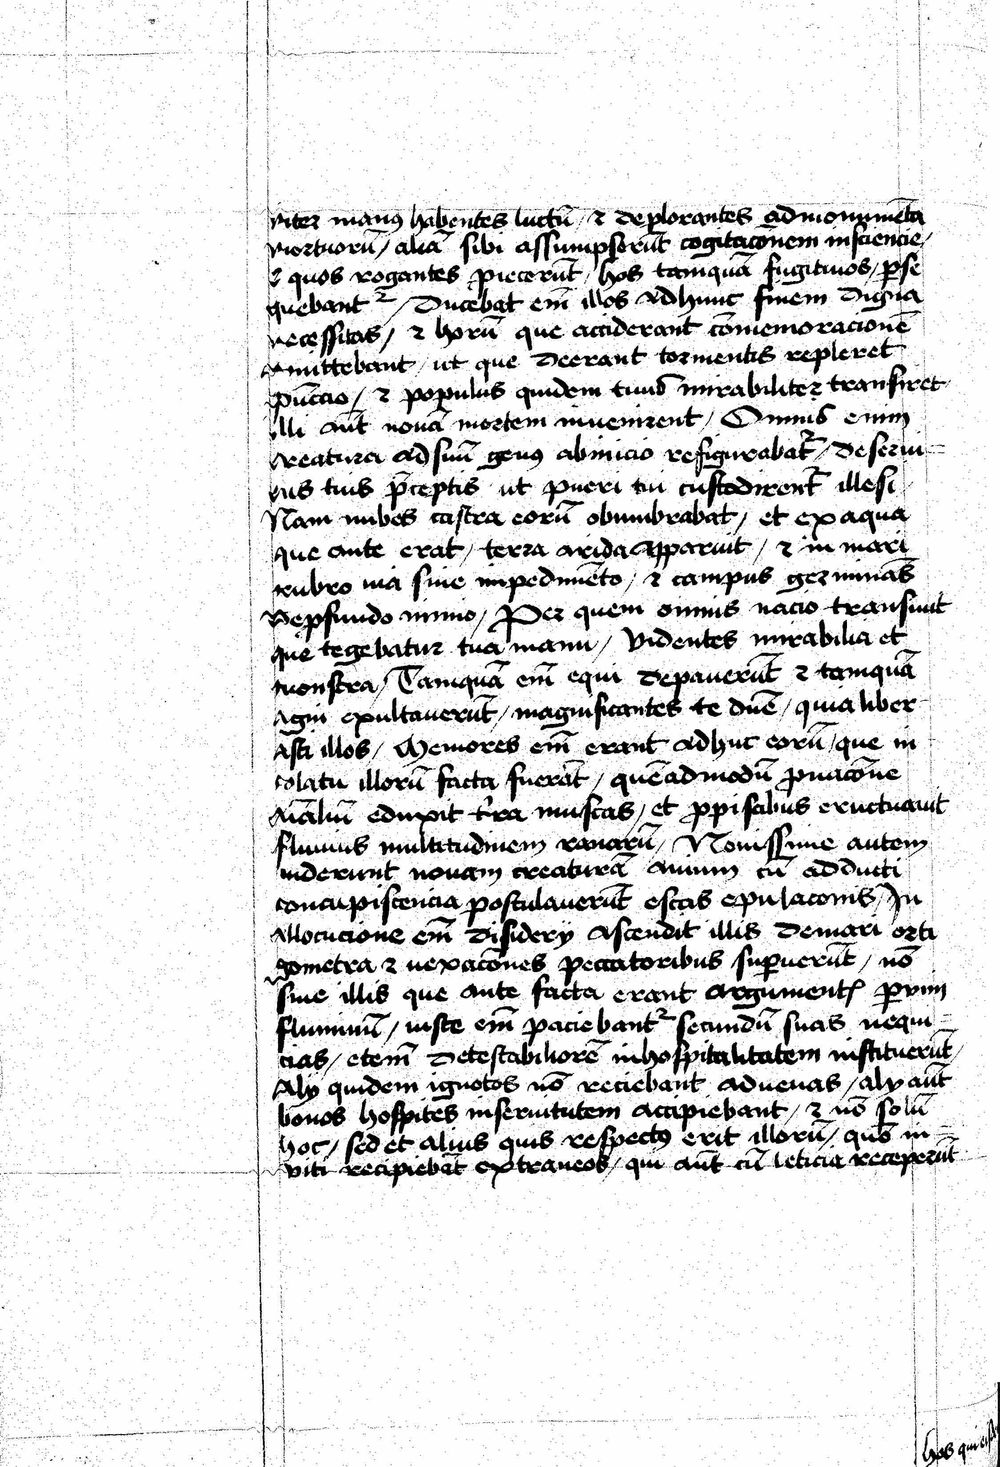 inter man9 habentes luctū / ⁊ deplorantes ad monumēta
mortuorū / aliā sibi assumpserūt cogitacōnem insciencie /
⁊ quos rogantes ꝓiecerūt / hos tamquā fugitiuos / ꝑse
quebant᷑ / Ducebat em̄ illos ad hunc finem digna
necessitas / ⁊ horū que acciderant cōmemoracionē
amittebant / ut que deerant tormentis repleret
pūicio / ⁊ populus quidem tuus mirabiliter transiret
illi aūt nouā mortem inuenirent / Omnis enim
creatura ad suū gen9 ab inicio refigurabat᷑ / deserui=
ens tuis p̄ceptis ut pueri tui custodirent᷑ illesi
Nam nubes castra eorū obumbrabat / et ex aqua
que ante erat / terra arida apparuit / ⁊ in mari
rubro uia sine impedimēto / ⁊ campus germinās
de ꝓfundo nimio / Per quem omnis nacio transiuit
que tegebatur tua manu / Videntes mirabilia et
monstra / Tamquā em̄ equi depauerūt ⁊ tamquā
agni exultauerūt / magnificantes te dn̄e / quia liber
asti illos / Memores em̄ erant adhuc eorū / que in
colatu illorū facta fuerāt / quēadmodū ꝓ nacōne
aīaliū eduxit t̄ra muscas / et ꝓ piscibus eructauit
fluuius multitudinem ranarū / Nouissime autem
uiderunt nouam creaturā auium cū adducti
concupiscencia postulauerūt escas epulaconis / In
allocucione em̄ disiderij ascendit illis de mari orti
gometra ⁊ uexacōnes peccatoribus suꝑuerūt / nō
sine illis que ante facta erant argument̄ ꝑ uim
fluminū / iuste em̄ paciebant᷑ secundū suas nequi=
cias / etem̄ detestabiliorē inhospitalitatem instituerūt /
Alij quidem ignotos nō reciebant aduenas / alij aūt
bonos hospites in seruitutem accipiebant / ⁊ nō solū
hoc / sed et alius quis respect9 erit illorū / qm̄ in=
uiti recipiebāt extraneos / qui aūt cū leticia receperūt
hos qui eisd